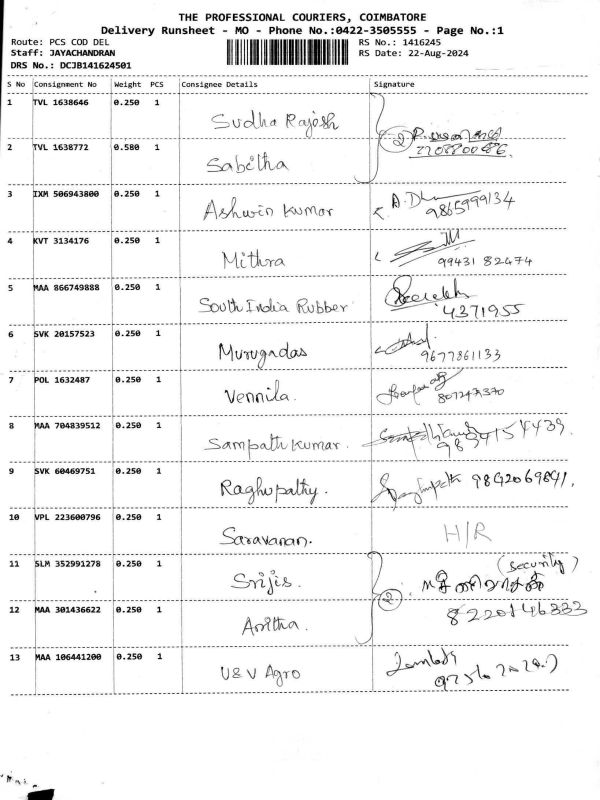 THE PROFESSIONAL COURIERS, COIMBATORE
Delivery Runsheet - MO - Phone No.:0422-3505555 - Page No.:1
Route: PCS COD DEL RS No.: 1416245
Staff: JAYACHANDRAN RS Date: 22-Aug-2024
DRS No.: DCJB141624501
S No Consignment No Weight PCS Consignee Details Signature
1 TVL 1638646 0.250 1 Sudha Rajesh
2 TVL 1638772 0.580 1 Sabitha 2
3 IXM 506943800 0.250 1 Ashwin Kumar 9865999134
4 KVT 3134176 0.250 1 Mithra 99431 82474
5 MAA 866749888 0.250 1 South India Rubber 4371955
6 SVK 20157523 0.250 1 Murugadas 9677861133
7 POL 1632487 0.250 1 Vennila.
8 MAA 704839512 0.250 1 Sampath Kumar.
9 SVK 60469751 0.250 1 Raghupathy. 9842069841.
10 VPL 223600796 0.250 1 Saravanan. H/R
11 SLM 352991278 0.250 1 Srijis. (security)
12 MAA 301436622 0.250 1 Anitha. 2 8220146333
13 MAA 106441200 0.250 1 U&V Agro